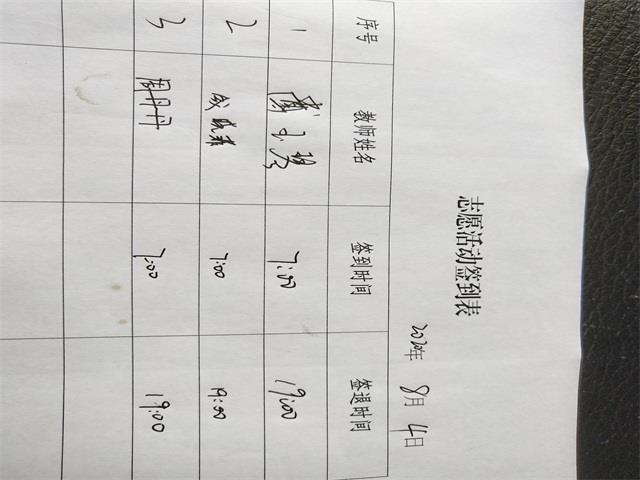 志愿活动签到表
2020年 8月 4日
序号 教师姓名 签到时间 签退时间
1 7:00 19:00
2 成晓霖 7:00 19:00
3 周丹丹 7:00 19:00